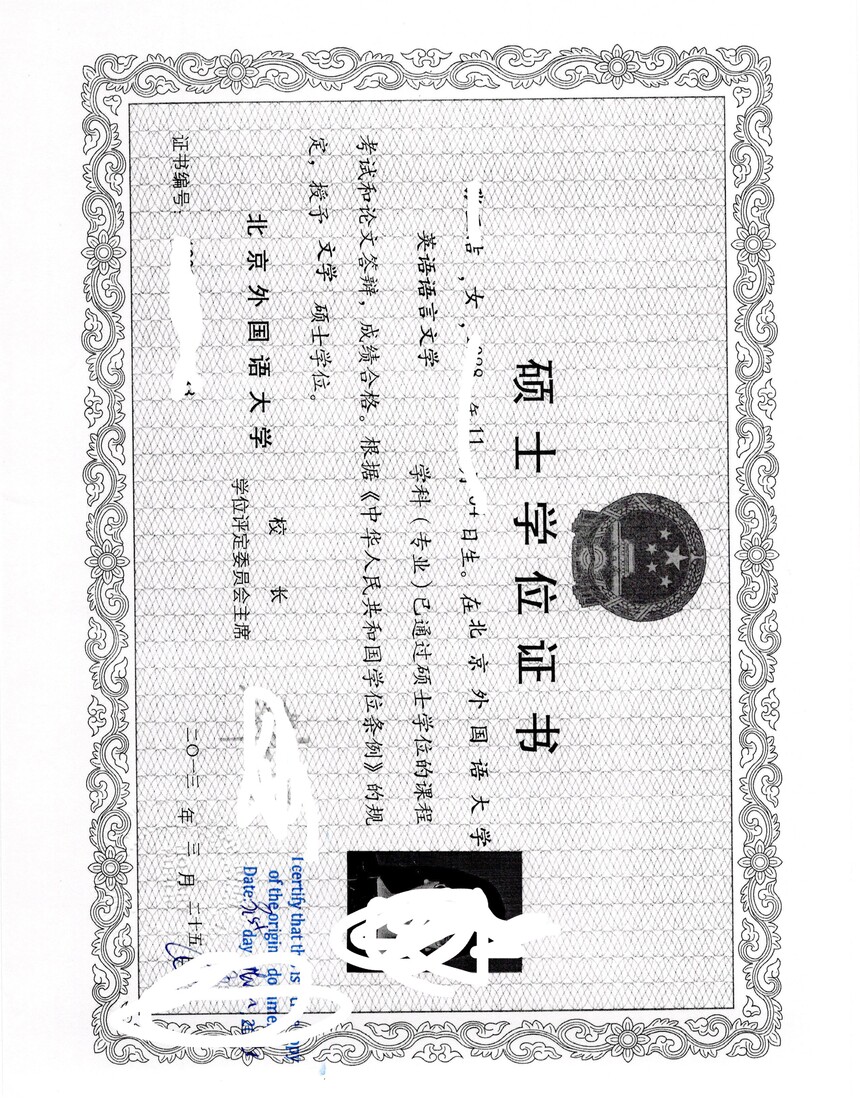 硕士学位证书
，女，
年11
日生。在北京外国语大学
英语语言文学 学科（专业）已通过硕士学位的课程
考试和论文答辩，成绩合格。根据《中华人民共和国学位条例》的规
定，授予 文学 硕士学位。
北京外国语大学
校长
学位评定委员会主席
证书编号：
二〇一三年 三月 二十五
I certify that th is
of the origin do
Date 21st day